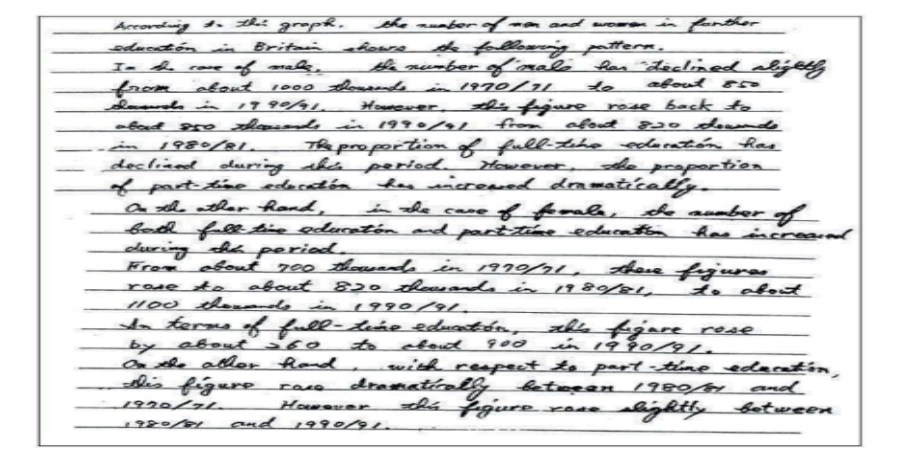 According to this graph, the number of men and women in further
education in Britain shows the following pattern.
In the case of male, the number of male has declined slightly
from about 1000 thousands in 1970/71 to about 850
thousands in 1990/91. However, this figure rose back to
about 850 thousands in 1990/91 from about 820 thousands
in 1980/81. The proportion of full-time education has
declined during this period. However, the proportion
of part-time education has increased dramatically.
On the other hand, in the case of female, the number of
both full-time education and part-time education has increased
during this period.
From about 700 thousands in 1970/71, these figures
rose to about 820 thousands in 1980/81, to about
1100 thousands in 1990/91.
In terms of full-time education, this figure rose
by about 260 to about 900 in 1990/91.
On the other hand, with respect to part-time education,
this figure rose dramatically between 1980/81 and
1970/71. However this figure rose slightly between
1980/81 and 1990/91.